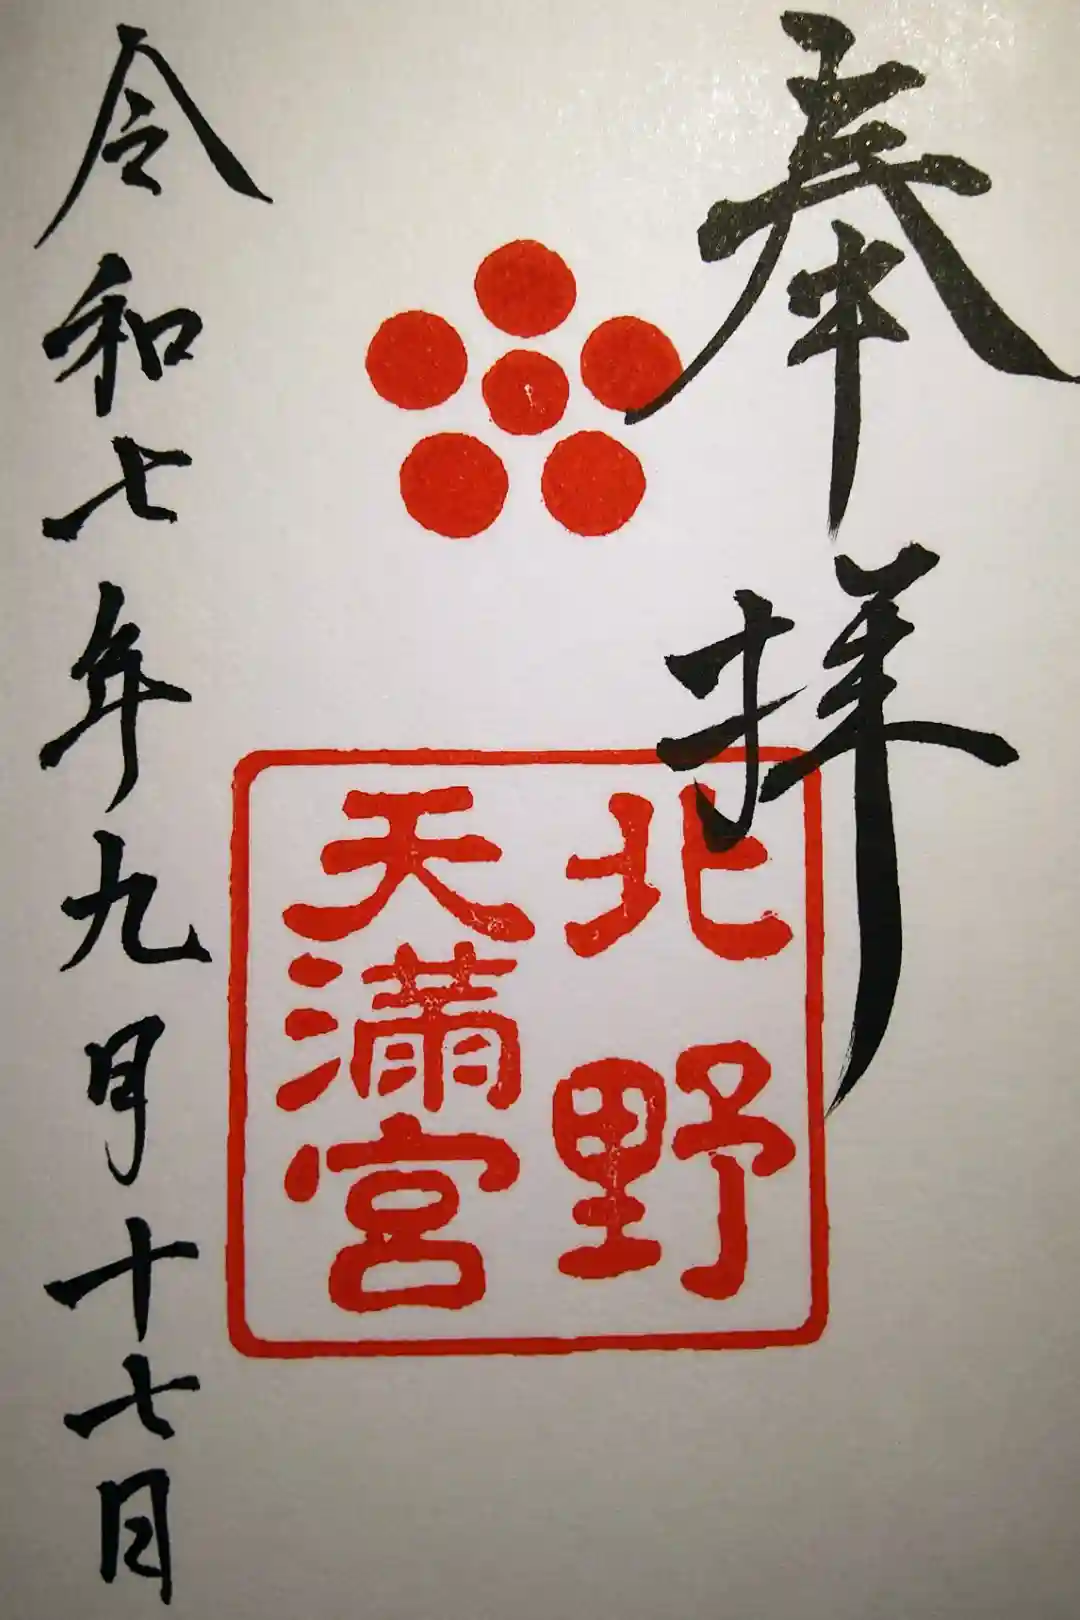 奉拝
北野
天満宮
令和七年九月十七日